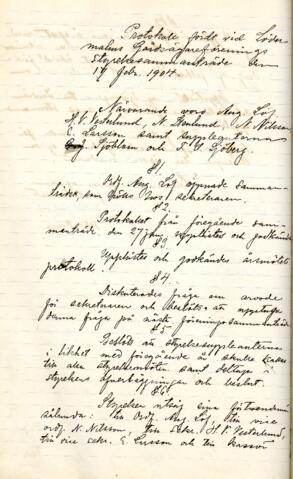 Protokoll fördt vid Söder-
malms Gårdsägareförenings
styrelsesammanträde den
17 febr. 1904.
Närvarande voro Aug. Löf
H. P. Vesterlund, N. Nilson
E. Larsson samt suppleanterna
Sjöblom och F. G. Sjöberg
§1.
Ordf. Aug. Löf öppnade samman-
trädet, som hos sekreteraren.
§2
Protokollet från föregående sam-
manträde den 27 jan. upplästes och godkändes
§3
Upplästes och godkändes årsmötets
protokoll.
§4.
Diskuterades fråga om arvode
för sekreteraren och beslöts att uppskjuta
denna fråga på näst föreningssammanträde
§5
Beslöts att styrelsesuppleanterna
i likhet med föregående år skulle kallas
till alla styrelsemöten samt deltaga i
styrelsens öfverläggningar och beslut.
§6.
Styrelsen utsåg sina förtroendemän
sålunda: till Ordf. Aug. Löf, till vice
ordf. N. Nilson, till sekr. H. P. Vesterlund,
till vice sekr. E. Larsson och till kassör